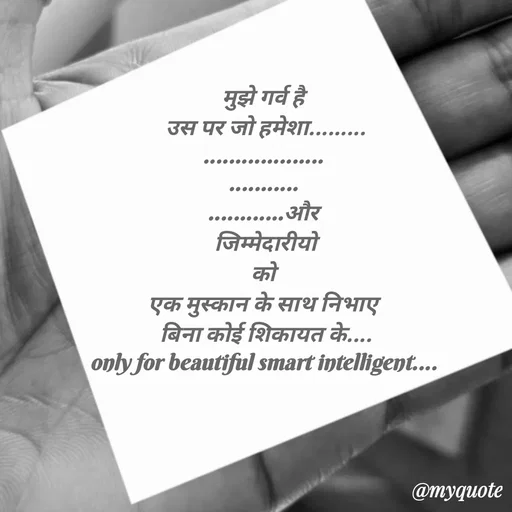 मुझे गर्व है
उस पर जो हमेशा.........
...................
...........
............और
जिम्मेदारीयो
को
एक मुस्कान के साथ निभाए
बिना कोई शिकायत के....
only for beautiful smart intelligent....
@myquote